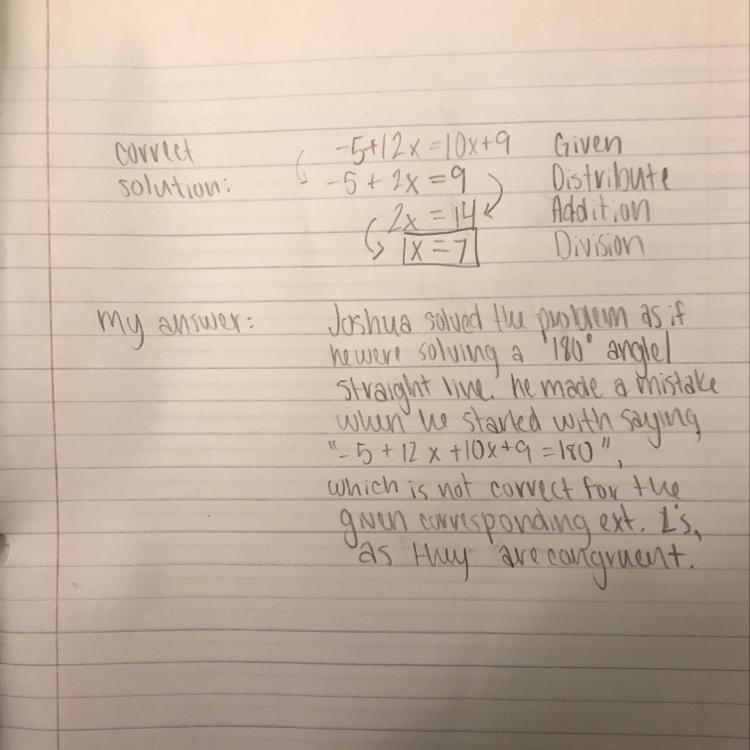 correct -5+12x=10x+9 Given
solution: -5+2x=9 Distribute
2x=14 Addition
1x=7 Division
My answer: Joshua solved the problem as if
he were solving a "180° angle/
straight line. he made a mistake
when he started with saying
"-5+12x+10x+9=180",
which is not correct for the
given corresponding ext. ∠'s,
as they are congruent.